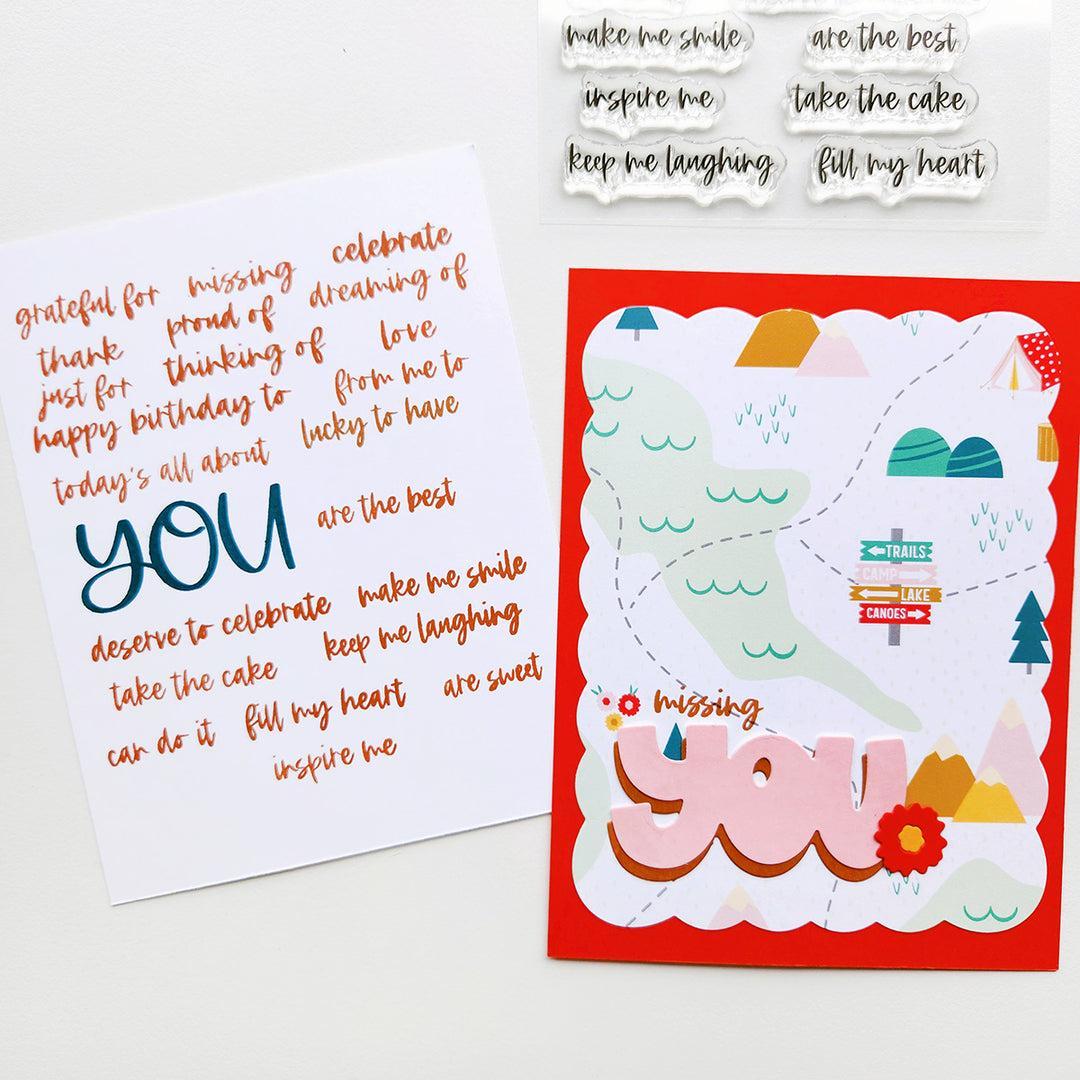 make me smile are the best
inspire me take the cake
keep me laughing fill my heart
grateful for missing celebrate
thank proud of dreaming of
just for thinking of love
happy birthday to from me to
today's all about lucky to have
YOU are the best
deserve to celebrate make me smile
take the cake keep me laughing
can do it fill my heart are sweet
inspire me
TRAILS
CAMP
LAKE
CANOES
missing
you